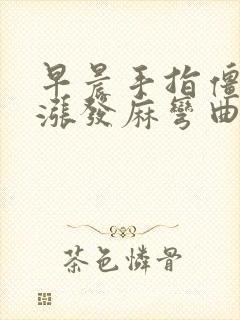 早晨手指僵
漲發麻彎曲
茶色憐骨